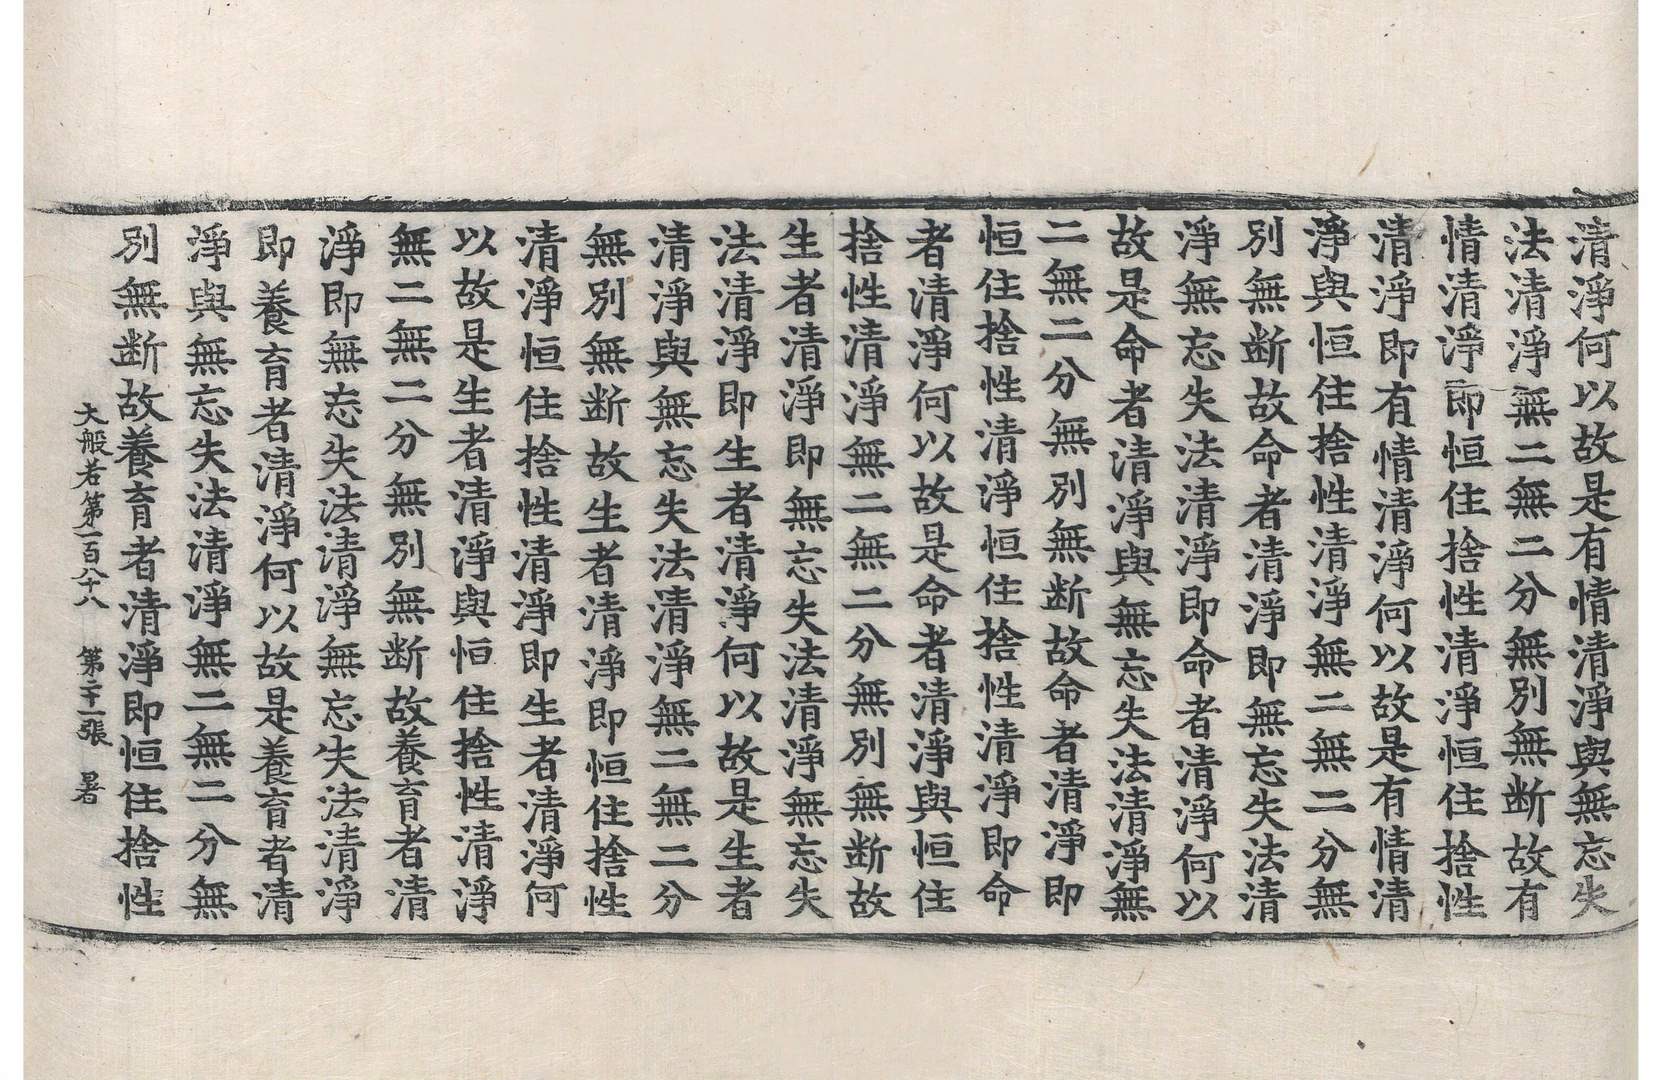 清淨何以故是有情清淨與無忘失
法清淨無二無二分無別無断故有
情清淨即恒住捨性清淨恒住捨性
清淨即有情清淨何以故是有情清
淨與恒住捨性清淨無二無二分無
別無断故命者清淨即無忘失法清
淨無忘失法清淨即命者清淨何以
故是命者清淨與無忘失法清淨無
二無二分無別無断故命者清淨即
恒住捨性清淨恒住捨性清淨即命
者清淨何以故是命者清淨與恒住
捨性清淨無二無二分無別無断故
生者清淨即無忘失法清淨無忘失
法清淨即生者清淨何以故是生者
清淨與無忘失法清淨無二無二分
無別無断故生者清淨即恒住捨性
清淨恒住捨性清淨即生者清淨何
以故是生者清淨與恒住捨性清淨
無二無二分無別無断故養育者清
淨即無忘失法清淨無忘失法清淨
即養育者清淨何以故是養育者清
淨與無忘失法清淨無二無二分無
別無断故養育者清淨即恒住捨性
大般若第一百八十八 第二十一張 暑